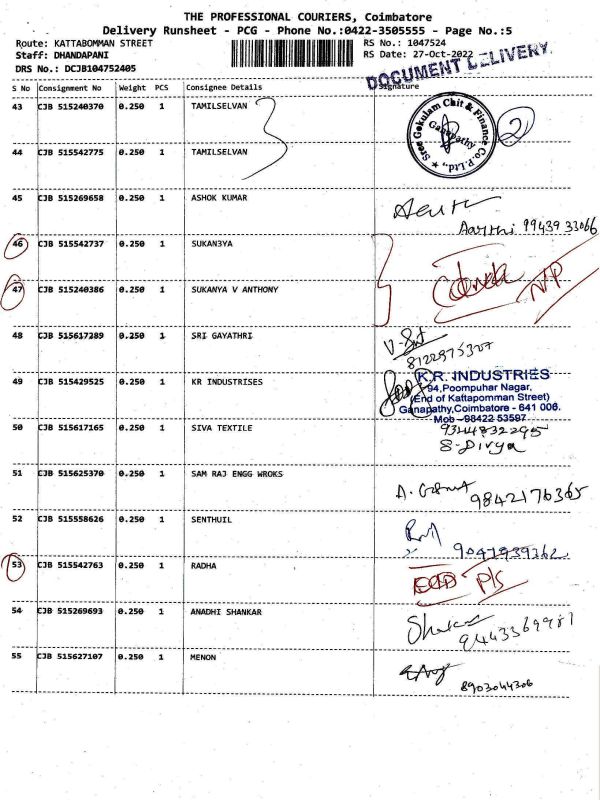 THE PROFESSIONAL COURIERS, Coimbatore
Delivery Runsheet - PCG - Phone No.:0422-3505555 - Page No.:5
Route: KATTABOMMAN STREET
RS No.: 1047524
Staff: DHANDAPANI
RS Date: 27-Oct-2022
DRS No.: DCJB104752405
DOCUMENT DELIVERY
S No Consignment No Weight PCS Consignee Details Signature
43 CJB 515240370 0.250 1 TAMILSELVAN
Sree Gokulam Chit & Finance Co.P.Ltd.,
Ganapathy
2
44 CJB 515542775 0.250 1 TAMILSELVAN
45 CJB 515269658 0.250 1 ASHOK KUMAR
Aarthi 9943933066
46 CJB 515542737 0.250 1 SUKAN3YA
47 CJB 515240386 0.250 1 SUKANYA V ANTHONY
N/P
48 CJB 515617289 0.250 1 SRI GAYATHRI
8122975307
49 CJB 515429525 0.250 1 KR INDUSTRISES
K.R. INDUSTRIES
94,Poompuhar Nagar,
(End of Kattapomman Street)
Ganapathy,Coimbatore - 641 006.
Mob -98422 53597
50 CJB 515617165 0.250 1 SIVA TEXTILE
9344832295
S-Divya
51 CJB 515625370 0.250 1 SAM RAJ ENGG WROKS
9842176365
52 CJB 515558626 0.250 1 SENTHUIL
9047939362
53 CJB 515542763 0.250 1 RADHA
P/S
54 CJB 515269693 0.250 1 ANADHI SHANKAR
9443369981
55 CJB 515627107 0.250 1 MENON
8903044306